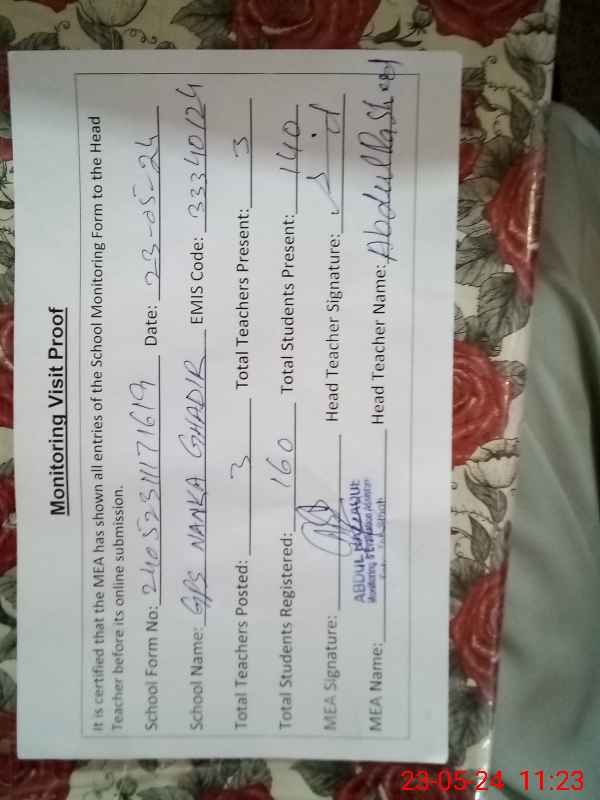 Monitoring Visit Proof
It is certified that the MEA has shown all entries of the School Monitoring Form to the Head
Teacher before its online submission.
School Form No: 24052311171619 Date: 23-05-24
School Name: GPS NANKA GHADIR EMIS Code: 33340124
Total Teachers Posted: 3 Total Teachers Present: 3
Total Students Registered: 160 Total Students Present: 140
MEA Signature: Head Teacher Signature:
ABDUL RAZZAQUE
Monitoring & Evaluation Assistant
MEA Name: Head Teacher Name: Abdul Rasheed
23-05-24 11:23